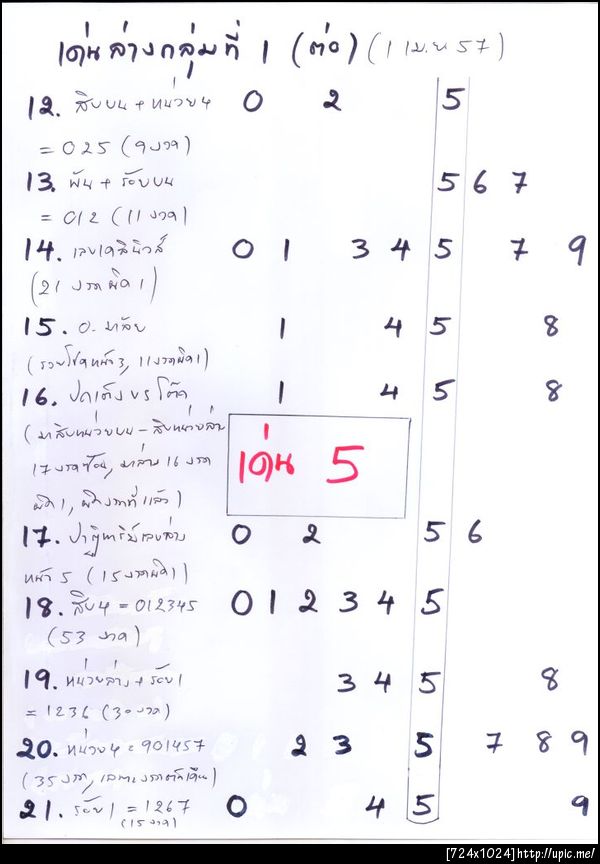 เด่นล่างกลุ่มที่ 1 (ต่อ) (1 เม.ย 57)
12. สิบบน + หน่วย 4 0 2 5
= 025 (9 งวด)
13. พัน + ร้อยบน 5 6 7
= 012 (11 งวด)
14. เลขเดลินิวส์ 0 1 3 4 5 7 9
(21 งวดผิด 1)
15. อ. มาลัย 1 4 5 8
(รวยโชคหน้า 3, 11 งวดผิด 1)
16. ปดเต้ง โต๊ด 1 4 5 8
(มาสิบหน่วยบน - สิบหน่วยล่าง
17 งวดซ้อน, มาล่าง 16 งวด
เด่น 5
ผิด 1, ผิดงวดที่ 1 แล้ว)
17. ปาฏิหาริย์เลขล่าง 0 2 5 6
หน้า 5 (15 งวดผิด 1)
18. สิบ 4 = 012345 0 1 2 3 4 5
(53 งวด)
19. หน่วยล่าง + ร้อย 1 3 4 5 8
= 1236 (30 งวด)
20. หน่วย 4 = 901457 2 3 5 7 8 9
(35 งวด,
21. ร้อย 1 = 1267 0 4 5 9
(15 งวด)
[724x1024]http://upic.me/